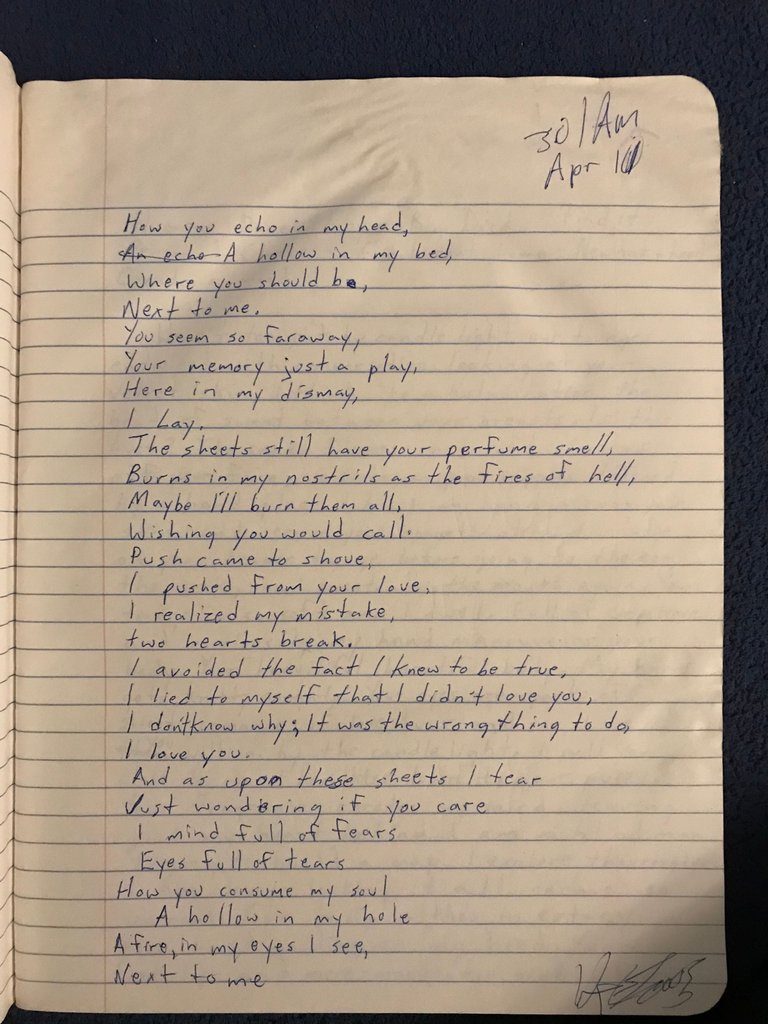 301 Am
Apr
How you echo in my head,
An echo A hollow in my bed,
Where you should be,
Next to me.
You seem so faraway,
Your memory just a play,
Here in my dismay,
I Lay.
The sheets still have your perfume smell,
Burns in my nostrils as the fires of hell,
Maybe I'll burn them all,
Wishing you would call.
Push came to shove,
I pushed from your love,
I realized my mistake,
two hearts break.
I avoided the fact I knew to be true,
I lied to myself that I didn't love you,
I don't know why; It was the wrong thing to do,
I love you.
And as upon these sheets I tear
Just wondering if you care
I mind full of fears
Eyes full of tears
How you consume my soul
A hollow in my hole
A fire, in my eyes I see,
Next to me